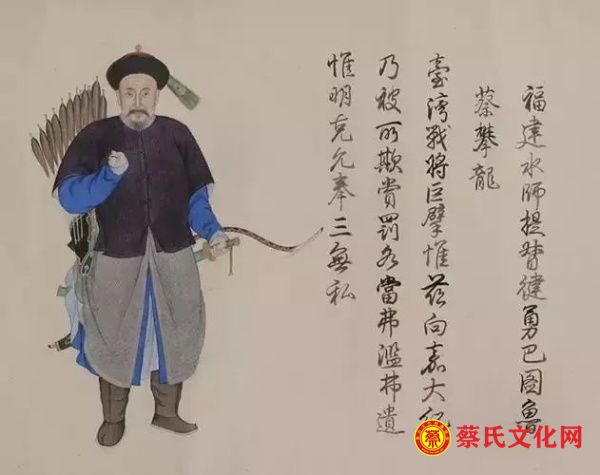 福建水师提督健勇巴图鲁
蔡攀龍
臺湾戰將巨擘惟茲向嘉大紀
乃被所欺賞罰各當弗濫弗遺
惟明克允奉三無私
蔡
蔡氏文化网